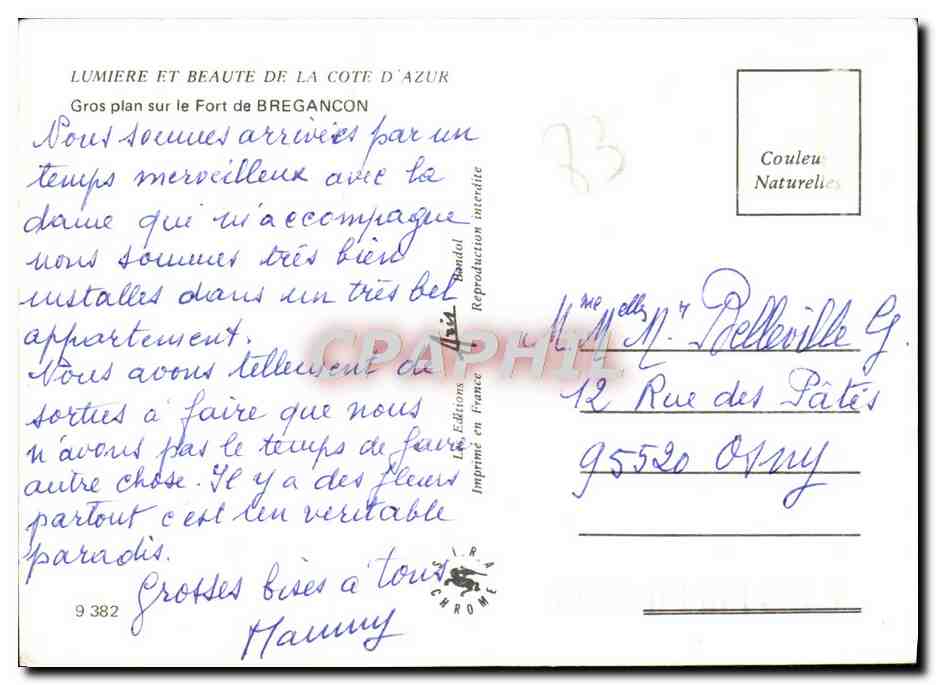 LUMIERE ET BEAUTE DE LA COTE D'AZUR
Gros plan sur le Fort de BREGANCON
Nous sommes arrivées par un
temps merveilleux avec la
dame qui m'accompagne
nous sommes très bien
installes dans un très bel
appartement.
Nous avons tellement de
sorties à faire que nous
n'avons pas le temps de faire
autre chose. Il y a des fleurs
partout c'est un veritable
paradis.
Grosses bises à tous
Mammy
9 382
Les Editions Aris Bandol
Imprimé en France Reproduction interdite
SIRA CHROME
CPAPHIL
83
Couleurs
Naturelles
Mme Melles Mr Belleville G.
12 Rue des Pâtis
95520 Osny